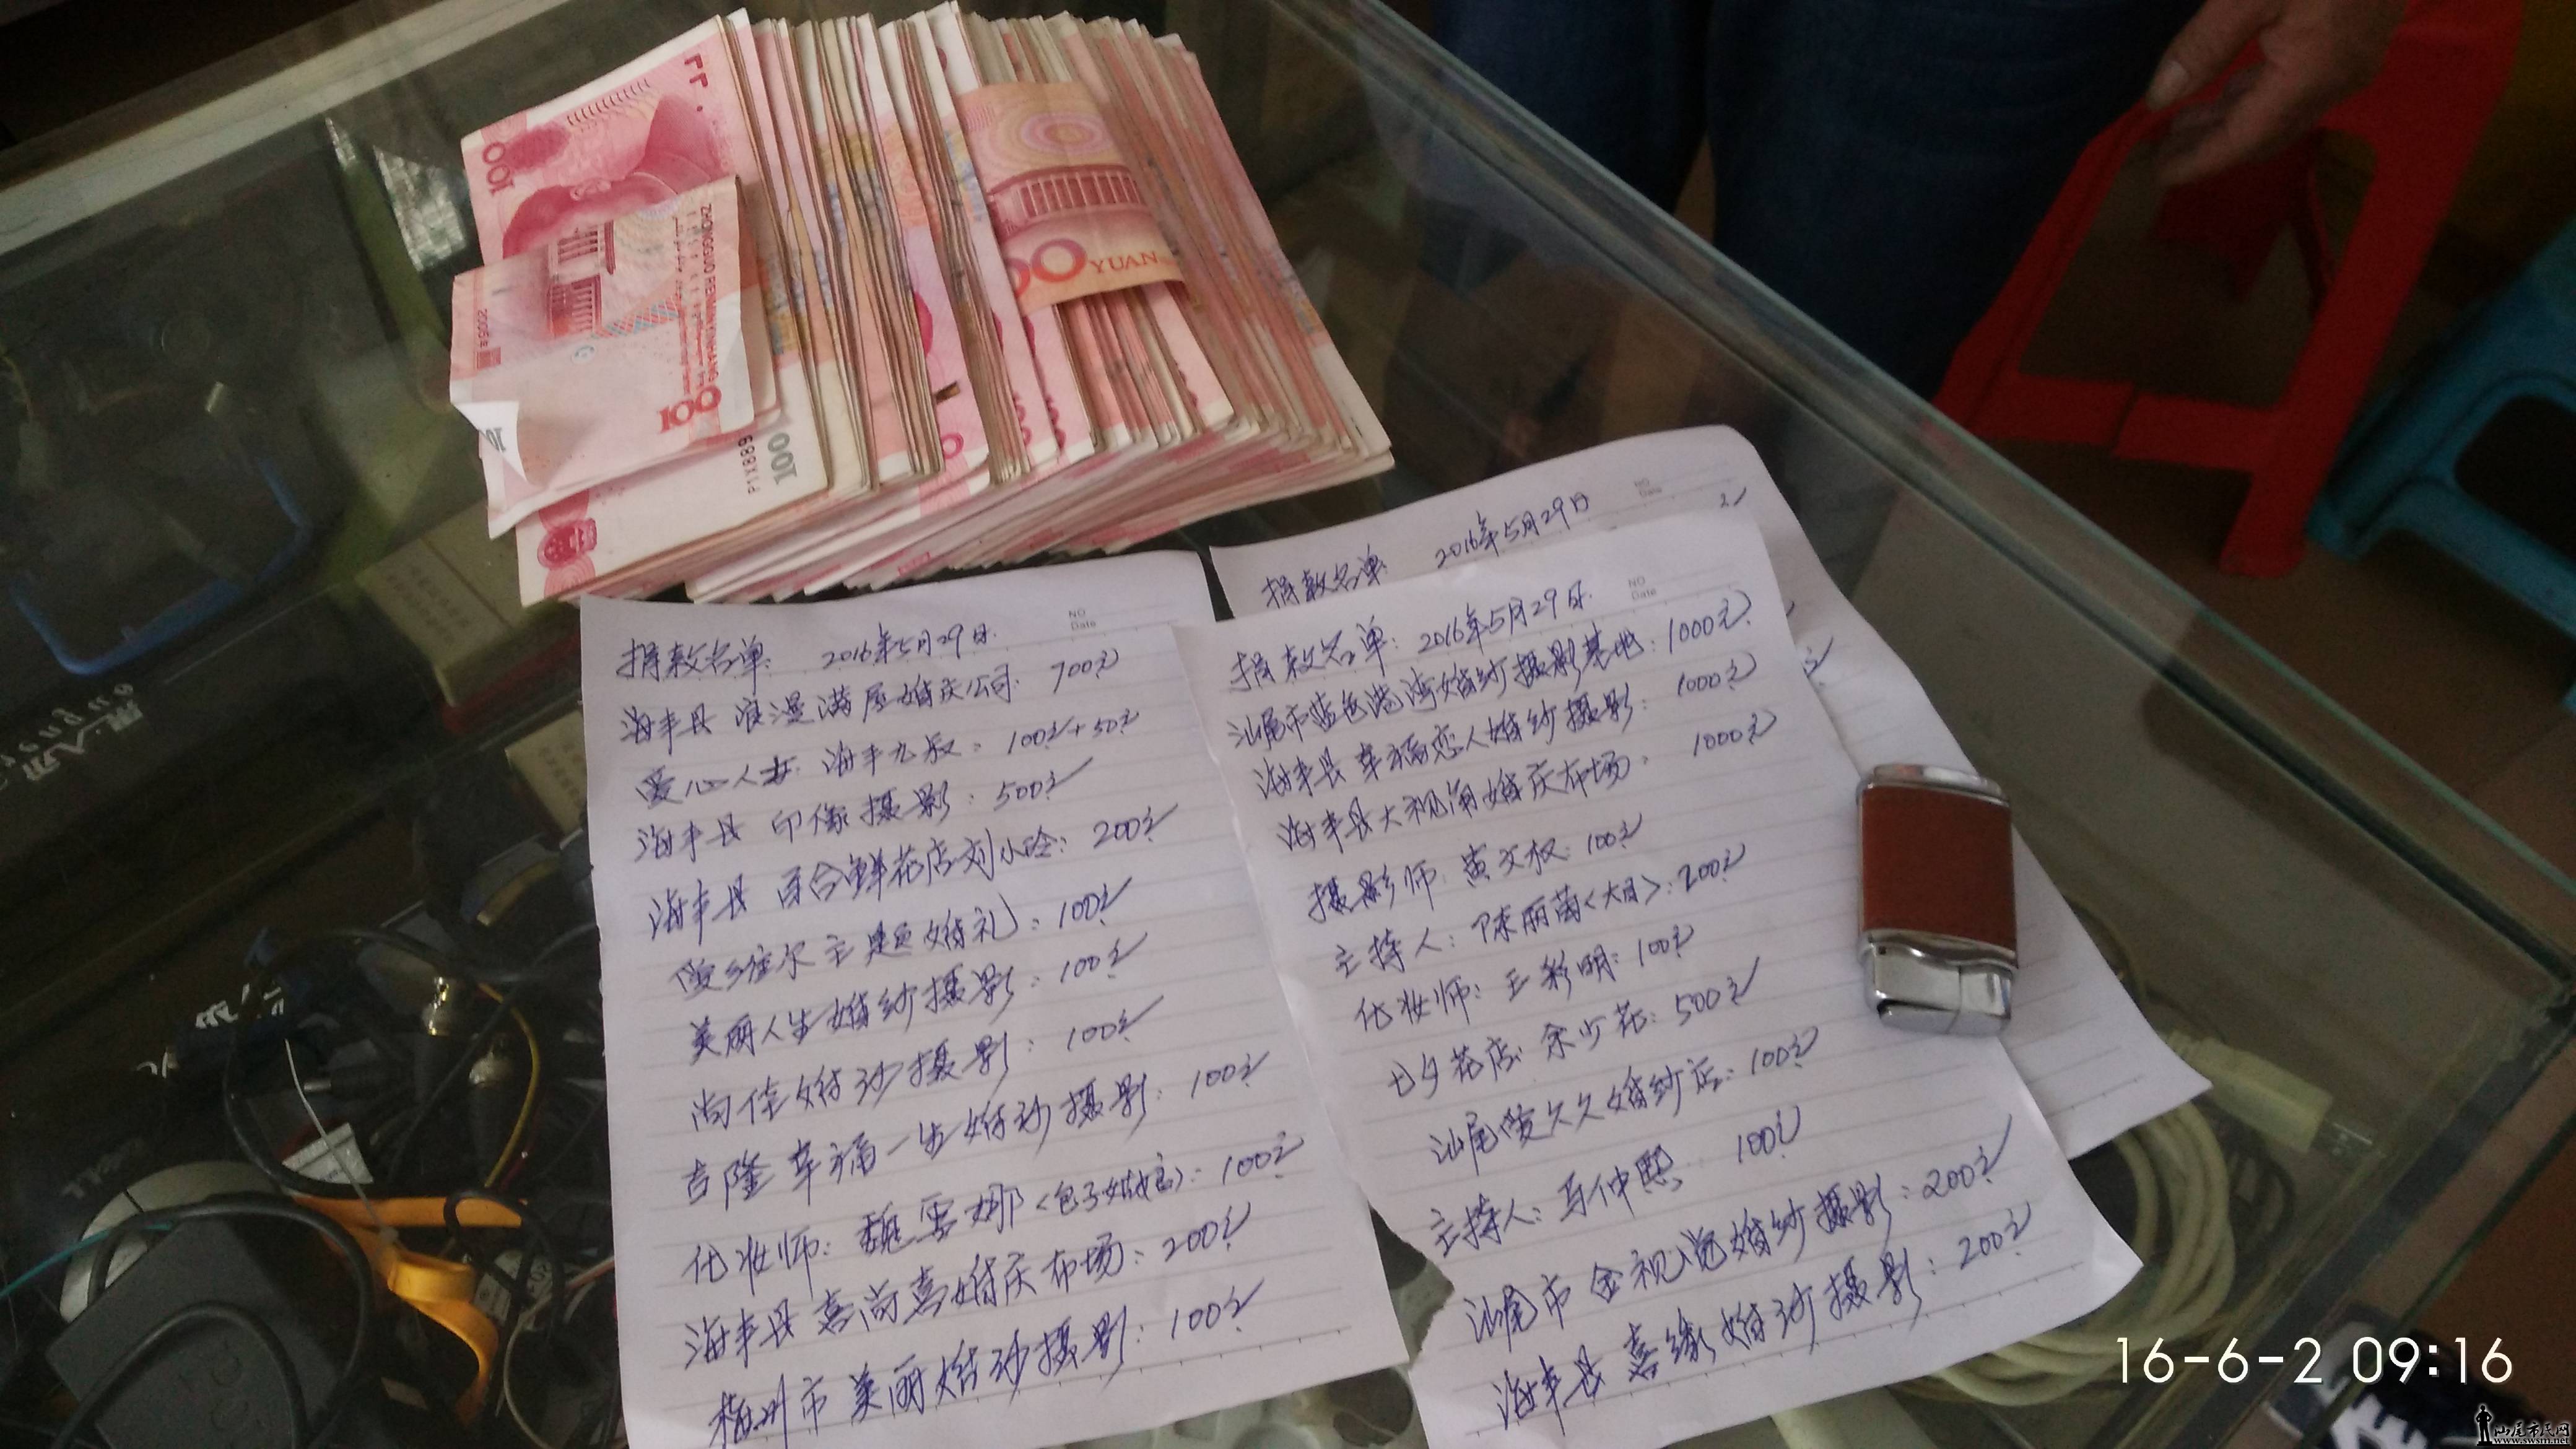 100
ZHONGGUO RENMIN YINHANG
2005年
100
100
YUAN
NO
Date
捐款名单: 2016年5月29日.
海丰县 浪漫满屋婚庆公司: 700元
爱心人士: 海丰九叔: 100元+50元
海丰县 印像摄影: 500元
海丰县 百合鲜花店刘小玲: 200元
爱维尔主题婚礼: 100元
美丽人生婚纱摄影: 100元
尚佳婚纱摄影: 100元
吉隆幸福一生婚纱摄影: 100元
化妆师: 魏雪娜<包子姑娘>: 100元
海丰县喜尚喜婚庆布场: 200元
梅州市美丽婚纱摄影: 100元
NO
Date
2
捐款名单: 2016年5月29日
NO
Date
捐款名单: 2016年5月29日.
汕尾市蓝色港湾婚纱摄影基地: 1000元
海丰县幸福恋人婚纱摄影: 1000元
海丰县大视角婚庆布场: 1000元
摄影师: 黄文权: 100元
主持人: 陈丽茵<大目>: 200元
化妆师: 王彩明: 100元
七夕花店: 余少花: 500元
汕尾爱久久婚纱店: 100元
主持人: 马仲熙: 100元
汕尾市金视觉婚纱摄影: 200元
海丰县喜缘婚纱摄影: 200元
16-6-2 09:16
汕尾市民网
www.swsm.net